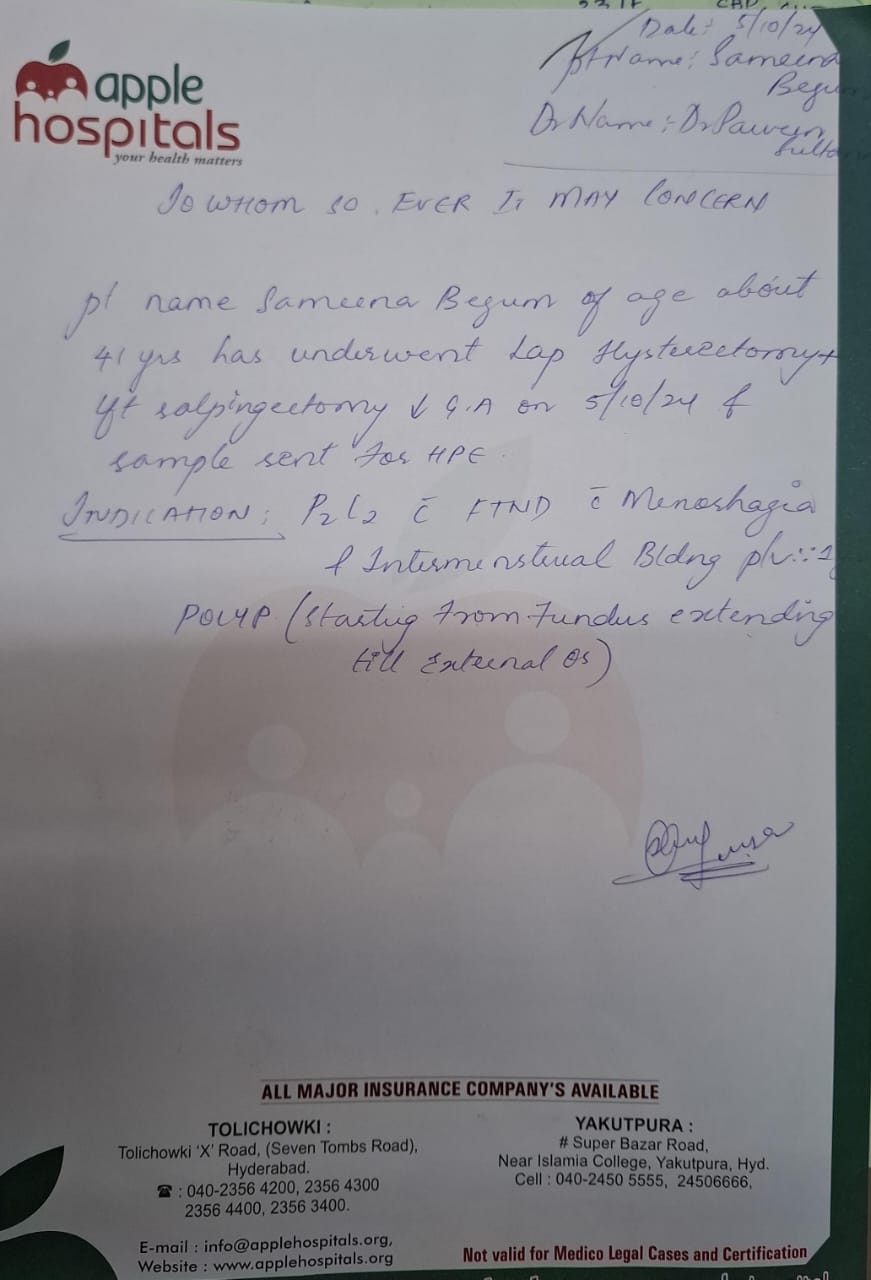 Date: 5/10/24
apple
hospitals
your health matters
Pt Name: Sameena
Begu
Dr Name: Dr
TO WHOM SO. EVER IT MAY CONCERN
pt name Sameena Begum of age about
41 yrs has underwent Lap Hysterectomy+
salpingectomy ↓ G.A on 5/10/24 &
sample sent for HPE
INDICATION: P2L2 c̄ FTND c̄ Menorhagia
& Intermenstrual Bldng
POLYP (Starting from Fundus extending
till External Os)
ALL MAJOR INSURANCE COMPANY'S AVAILABLE
TOLICHOWKI :
Tolichowki 'X' Road, (Seven Tombs Road),
Hyderabad.
☎ : 040-2356 4200, 2356 4300
2356 4400, 2356 3400.
E-mail : info@applehospitals.org,
Website : www.applehospitals.org
YAKUTPURA :
# Super Bazar Road,
Near Islamia College, Yakutpura, Hyd.
Cell : 040-2450 5555, 24506666,
Not valid for Medico Legal Cases and Certification